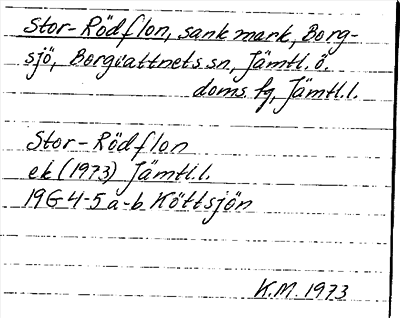 Stor-Rödflon, sank mark, Borg-
sjö, Borgvattnets sn, Jämtl. ö.
doms fg, Jämtl.l.
Stor-Rödflon
ek (1973) Jämtl.l.
19G4-5a-b Köttsjön
K.M. 1973